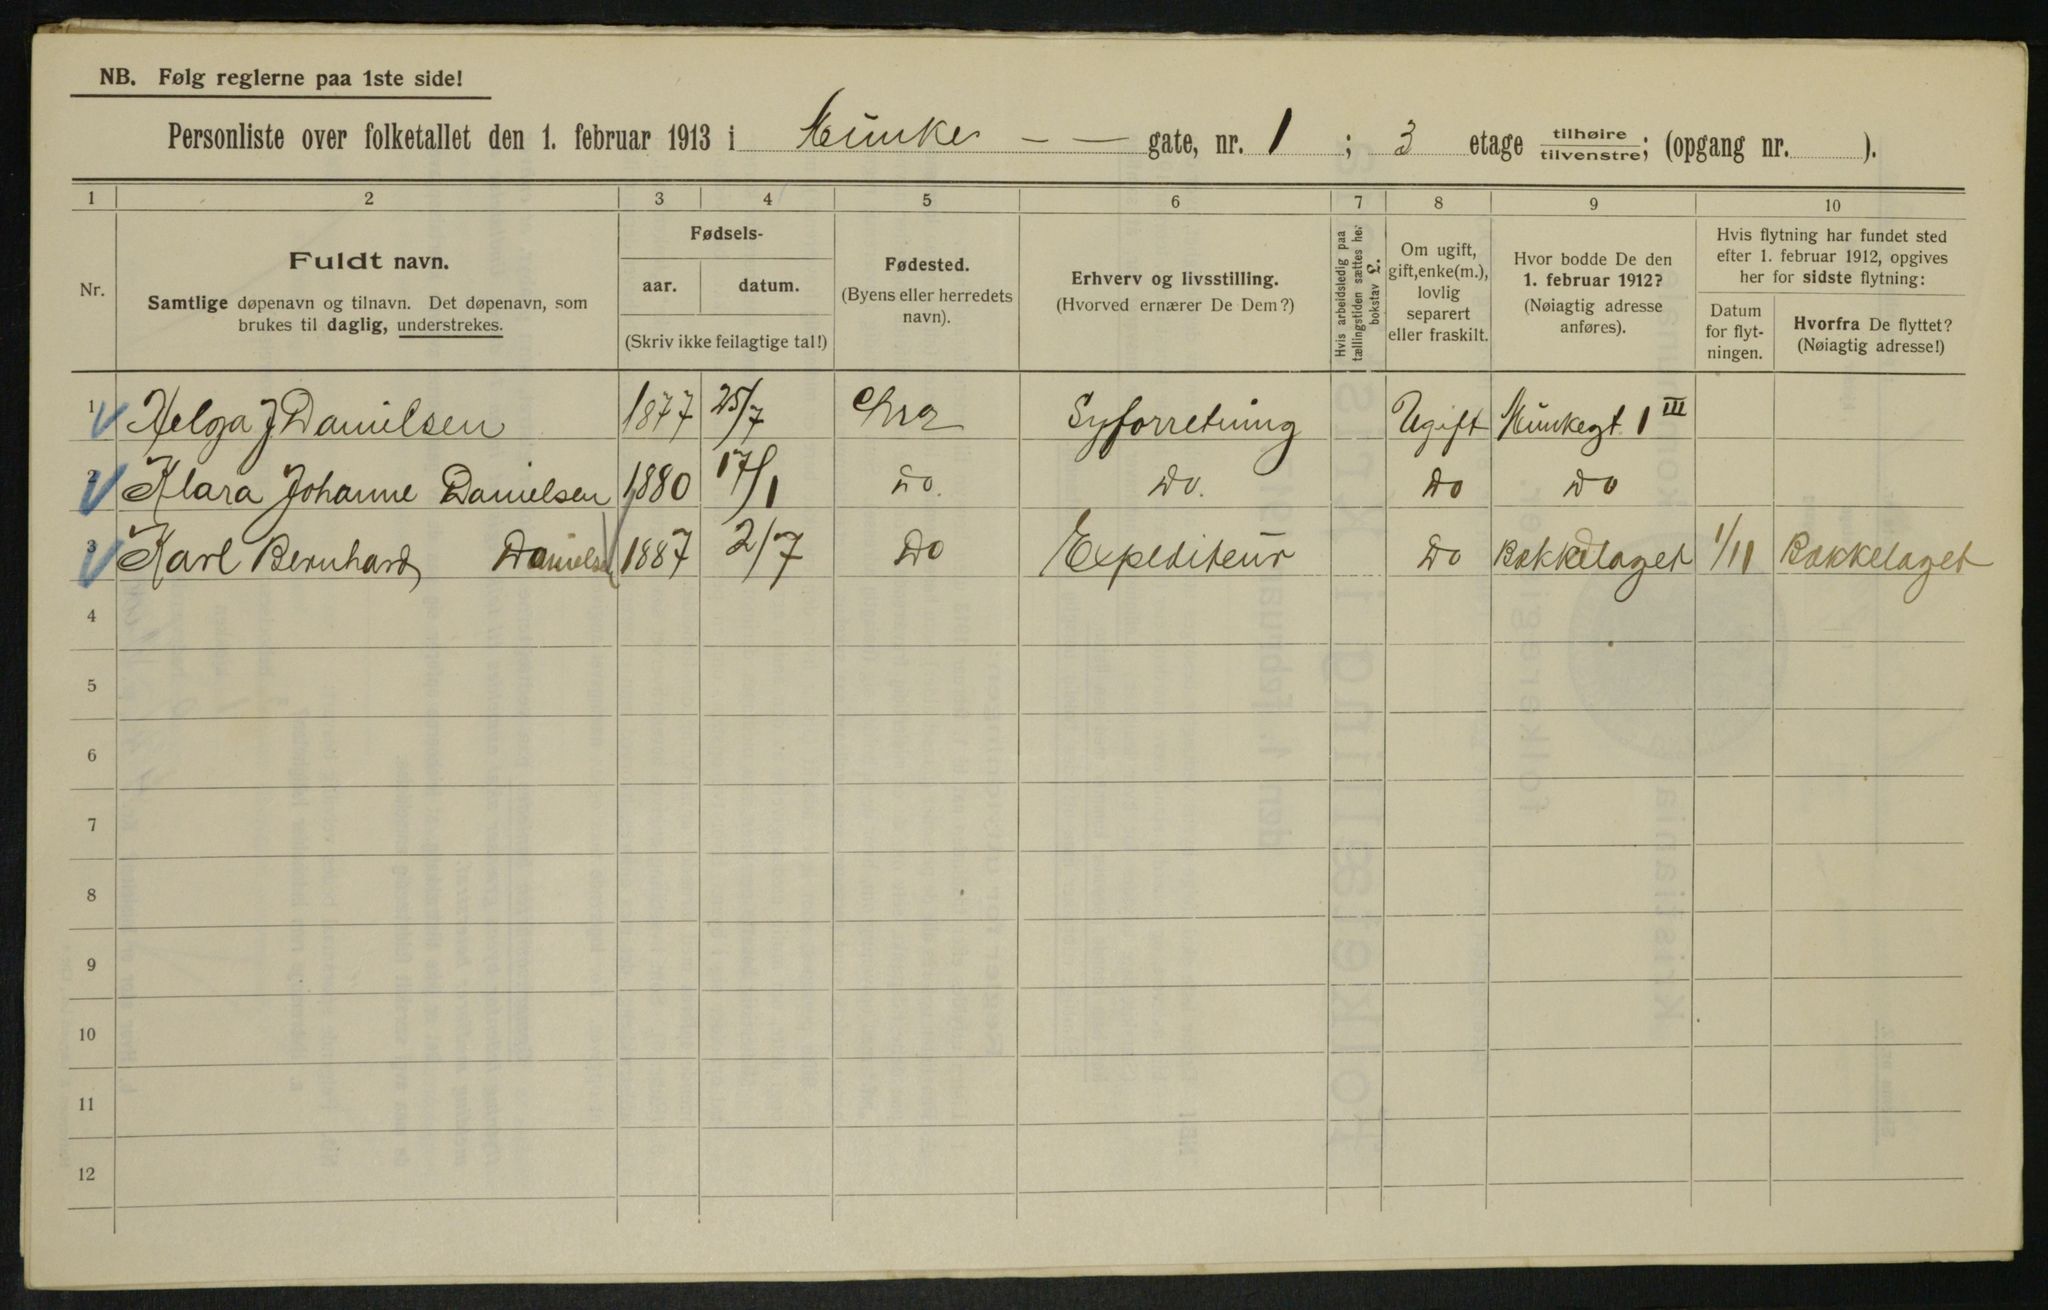 NB. Følg reglerne paa 1ste side!
Personliste over folketallet den 1. februar 1913 i Munke - - gate, nr. 1 ; 3 etage tilhøire tilvenstre; (opgang nr. ).
1 2 3 4 5 6 7 8 9 10
Nr.
Fuldt navn.
Samtlige døpenavn og tilnavn. Det døpenavn, som
brukes til daglig, understrekes.
Fødsels-
aar. datum.
(Skriv ikke feilagtige tal!)
Fødested.
(Byens eller herredets
navn).
Erhverv og livsstilling.
(Hvorved ernærer De Dem?)
Hvis arbeidsledig paa
tællingstiden sættes her
bokstav L.
Om ugift,
gift, enke(m.),
lovlig
separert
eller fraskilt.
Hvor bodde De den
1. februar 1912?
(Nøiagtig adresse
anføres).
Hvis flytning har fundet sted
efter 1. februar 1912, opgives
her for sidste flytning:
Datum
for flyt-
ningen.
Hvorfra De flyttet?
(Nøiagtig adresse!)
1 Helga J Danielsen 1877 25/7 Chra Syforretning Ugift Munkegt 1 III
2 Klara Johanne Danielsen 1880 17/1 Do. Do. Do Do
3 Karl Bernhard Danielsen 1887 2/7 Do Expediteur Do Bækkelaget 1/11 Bækkelaget
4
5
6
7
8
9
10
11
12